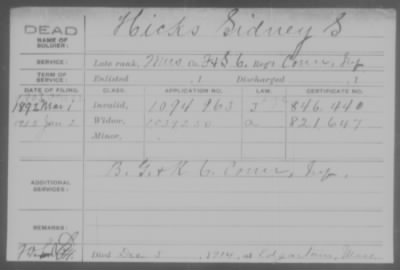 DEAD Hicks Sidney S
NAME OF SOLDIER:
SERVICE: Late rank, Mus Co. F & S 6, Reg't Conn, Inf
TERM OF SERVICE: Enlisted , 1 Discharged , 1
DATE OF FILING. CLASS. APPLICATION NO. LAW. CERTIFICATE NO.
1892 Mar 1 Invalid, 1094963 846.440
Jan 2 Widow, a 821,647
Minor,
ADDITIONAL SERVICES: B. G & K 6. Conn, Inf.
REMARKS:
Died Dec 3, 1914, at Edgartown, Mass